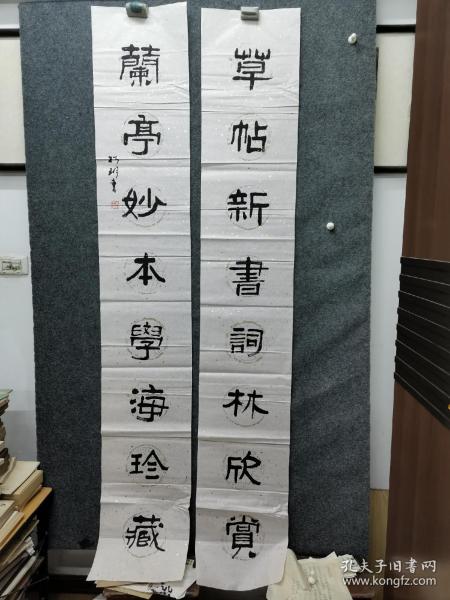 草帖新書詞林欣賞
蘭亭妙本學海珍藏
孔夫子旧书网
www.kongfz.com